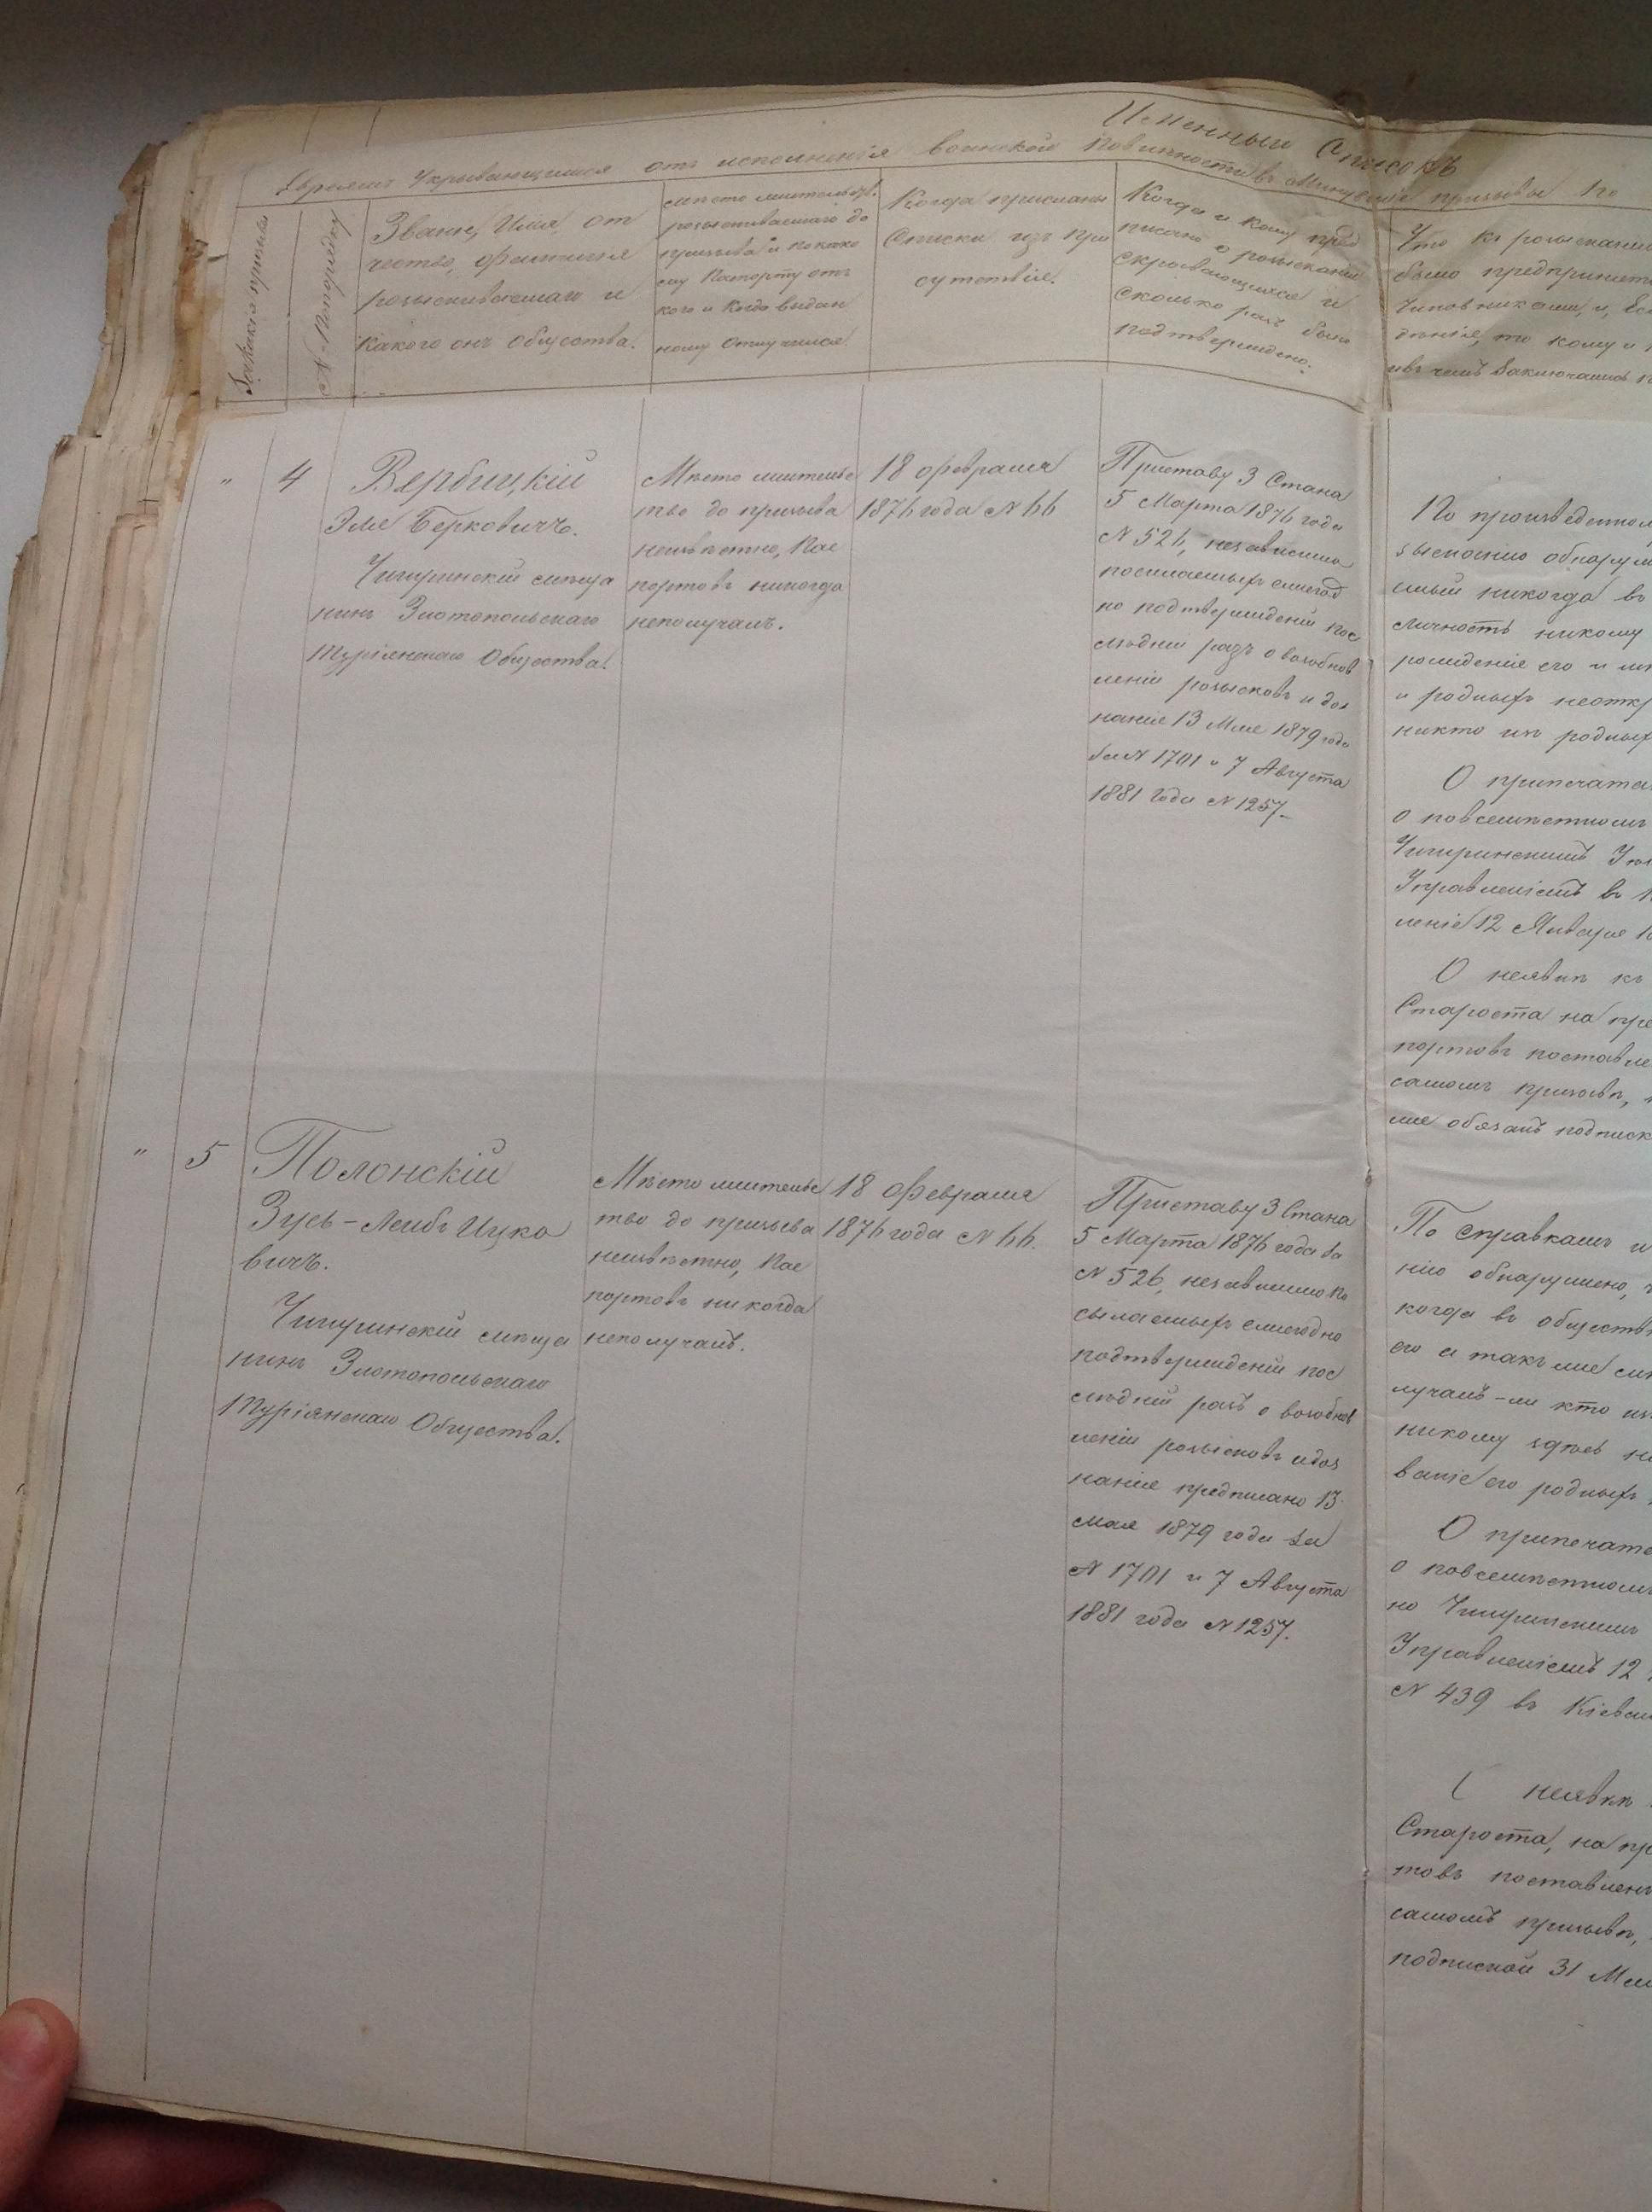 Именный Списокъ
Евреямъ Укрывающимся отъ исполненія воинской повинности въ Минувшіе призывы по
Какія призыва
№ По порядку
Званіе, Имя, от
чество, фамилія
розыскиваемаго и
какого онъ общества.
Место жительства
розыскиваемаго до
призыва и по како
му Паспорту отъ
кого и когда выдан
ному отлучился
Когда присланы
Списки изъ при
сутствія.
Когда и кому пред
писано о розысканіи
скрывающихся и
сколько разъ было
подтверждено.
Что къ розысканію
было предпринято
Чиновниками, и, Ес
то кому и
въ чемъ заключались
" 4 Вербицкій
Эля Берковичъ.
Чигиринскій меща
нинъ Златопольскаго
Туріянскаго Общества.
Место жительс
тво до призыва
неизвестно, Пас
портовъ никогда
неполучалъ.
18 февраля
1876 года № 66
Приставу 3 Стана
5 Марта 1876 года
№ 526, независимо
посылаемыхъ ежегод
но подтвержденій пос
ледній разъ о возобнов
леніи розысковъ и доз
наніе 13 Мая 1879 года
за № 1701 и 7 Августа
1881 года № 1257.
По произведенному
зысканію обнаруж
емый никогда въ
личность никому
рожденіе его и
и родныхъ неоткр
никто изъ родныхъ
О припечата
о повсеместномъ
Чигиринскимъ
Управленіемъ въ
леніе 12 Января
О неявке къ
Староста на пре
портовъ поставле
самомъ призыве,
же обязанъ подписк
" 5 Полонскій
Зусь-Лейбъ Ицко
вичъ.
Чигиринскій меща
нинъ Златопольскаго
Туріянскаго Общества.
Место жительс
тво до призыва
неизвестно, Пас
портовъ никогда
неполучалъ.
18 февраля
1876 года № 66.
Приставу 3 Стана
5 Марта 1876 года за
№ 526, независимо по
сылаемыхъ ежегодно
подтвержденій пос
ледній разъ о возобнов
леніи розысковъ и доз
наніе предписано 13
мая 1879 года за
№ 1701 и 7 Августа
1881 года № 1257.
По справкамъ и
нію обнаружено,
когда въ обществ
его а также
лучалъ-ли кто из
никому здесь
ваніе его родныхъ
О припечата
о повсеместномъ
но Чигиринскимъ
Управленіемъ 12
№ 439 въ Кіевск
О неявке
Староста, на пр
товъ поставленъ
самомъ призыве,
подпиской 31 Мая